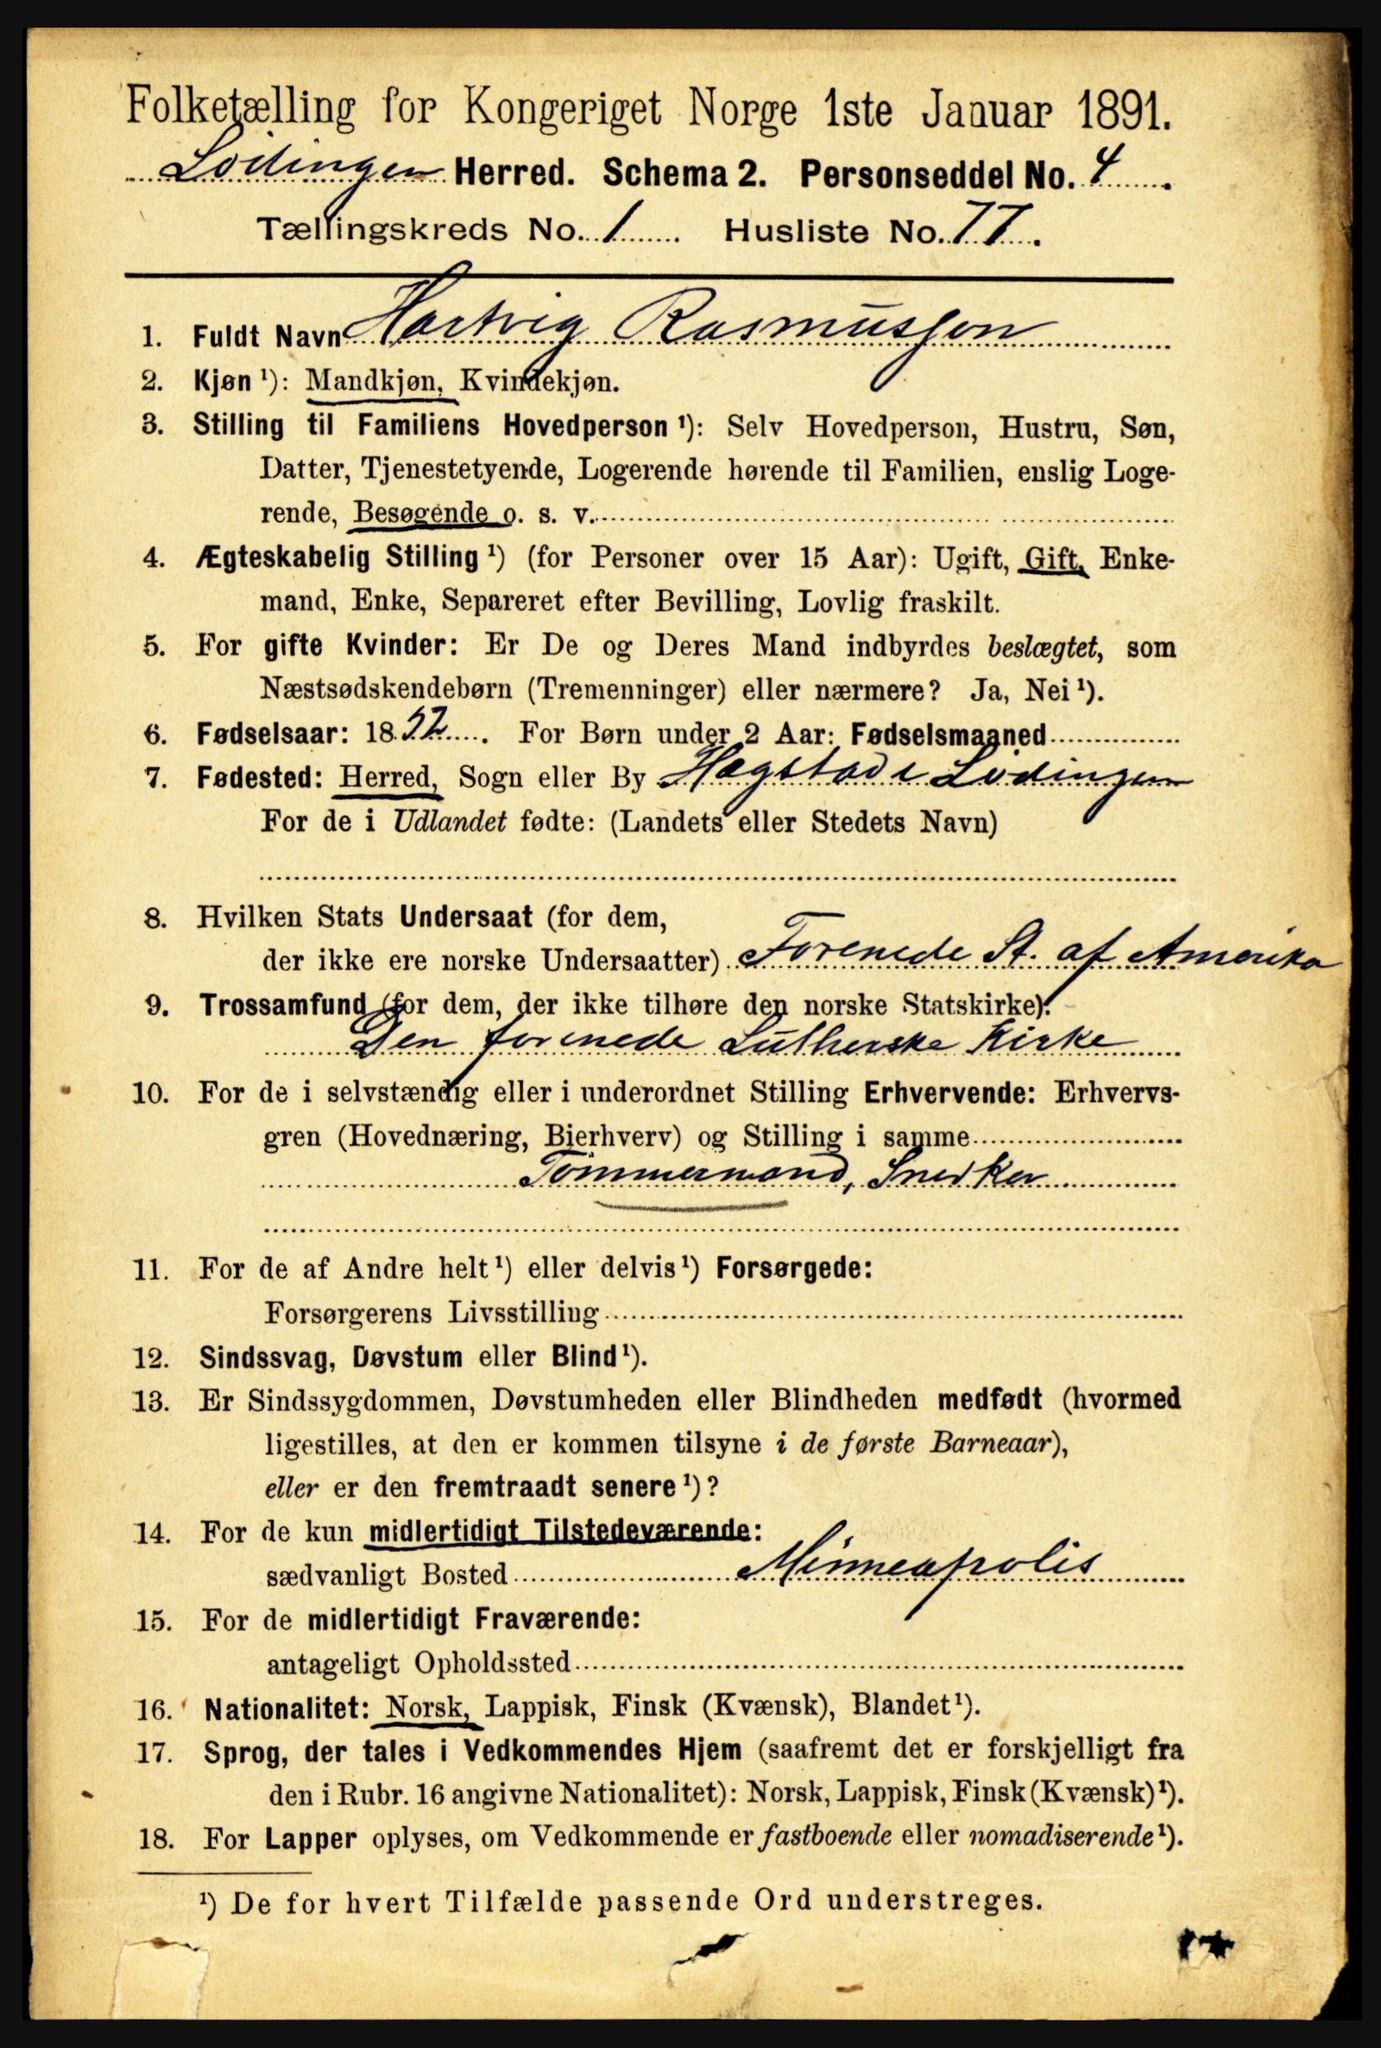 Folketælling for Kongeriget Norge 1ste Januar 1891.
Lødingen Herred. Schema 2. Personseddel No. 4
Tællingskreds No. 1 Husliste No. 77.
1. Fuldt Navn Hartvig Rasmussen
2. Kjøn ¹): Mandkjøn, Kvindekjøn.
3. Stilling til Familiens Hovedperson ¹): Selv Hovedperson, Hustru, Søn,
Datter, Tjenestetyende, Logerende hørende til Familien, enslig Loge-
rende, Besøgende o. s. v.
4. Ægteskabelig Stilling ¹) (for Personer over 15 Aar): Ugift, Gift, Enke-
mand, Enke, Separeret efter Bevilling, Lovlig fraskilt.
5. For gifte Kvinder: Er De og Deres Mand indbyrdes beslægtet, som
Næstsødskendebørn (Tremenninger) eller nærmere? Ja, Nei ¹).
6. Fødselsaar: 1852. For Børn under 2 Aar: Fødselsmaaned
7. Fødested: Herred, Sogn eller By Hægstad i Lødingen
For de i Udlandet fødte: (Landets eller Stedets Navn)
8. Hvilken Stats Undersaat (for dem,
der ikke ere norske Undersaatter) Forenede St. af Amerika
9. Trossamfund (for dem, der ikke tilhøre den norske Statskirke):
Den forenede Lutherske Kirke
10. For de i selvstændig eller i underordnet Stilling Erhvervende: Erhvervs-
gren (Hovednæring, Bierhverv) og Stilling i samme
Tømmermand, Snedker
11. For de af Andre helt ¹) eller delvis ¹) Forsørgede:
Forsørgerens Livsstilling
12. Sindssvag, Døvstum eller Blind ¹).
13. Er Sindssygdommen, Døvstumheden eller Blindheden medfødt (hvormed
ligestilles, at den er kommen tilsyne i de første Barneaar),
eller er den fremtraadt senere ¹)?
14. For de kun midlertidigt Tilstedeværende:
sædvanligt Bosted Minneapolis
15. For de midlertidigt Fraværende:
antageligt Opholdssted
16. Nationalitet: Norsk, Lappisk, Finsk (Kvænsk), Blandet ¹).
17. Sprog, der tales i Vedkommendes Hjem (saafremt det er forskjelligt fra
den i Rubr. 16 angivne Nationalitet): Norsk, Lappisk, Finsk (Kvænsk) ¹).
18. For Lapper oplyses, om Vedkommende er fastboende eller nomadiserende ¹).
¹) De for hvert Tilfælde passende Ord understreges.